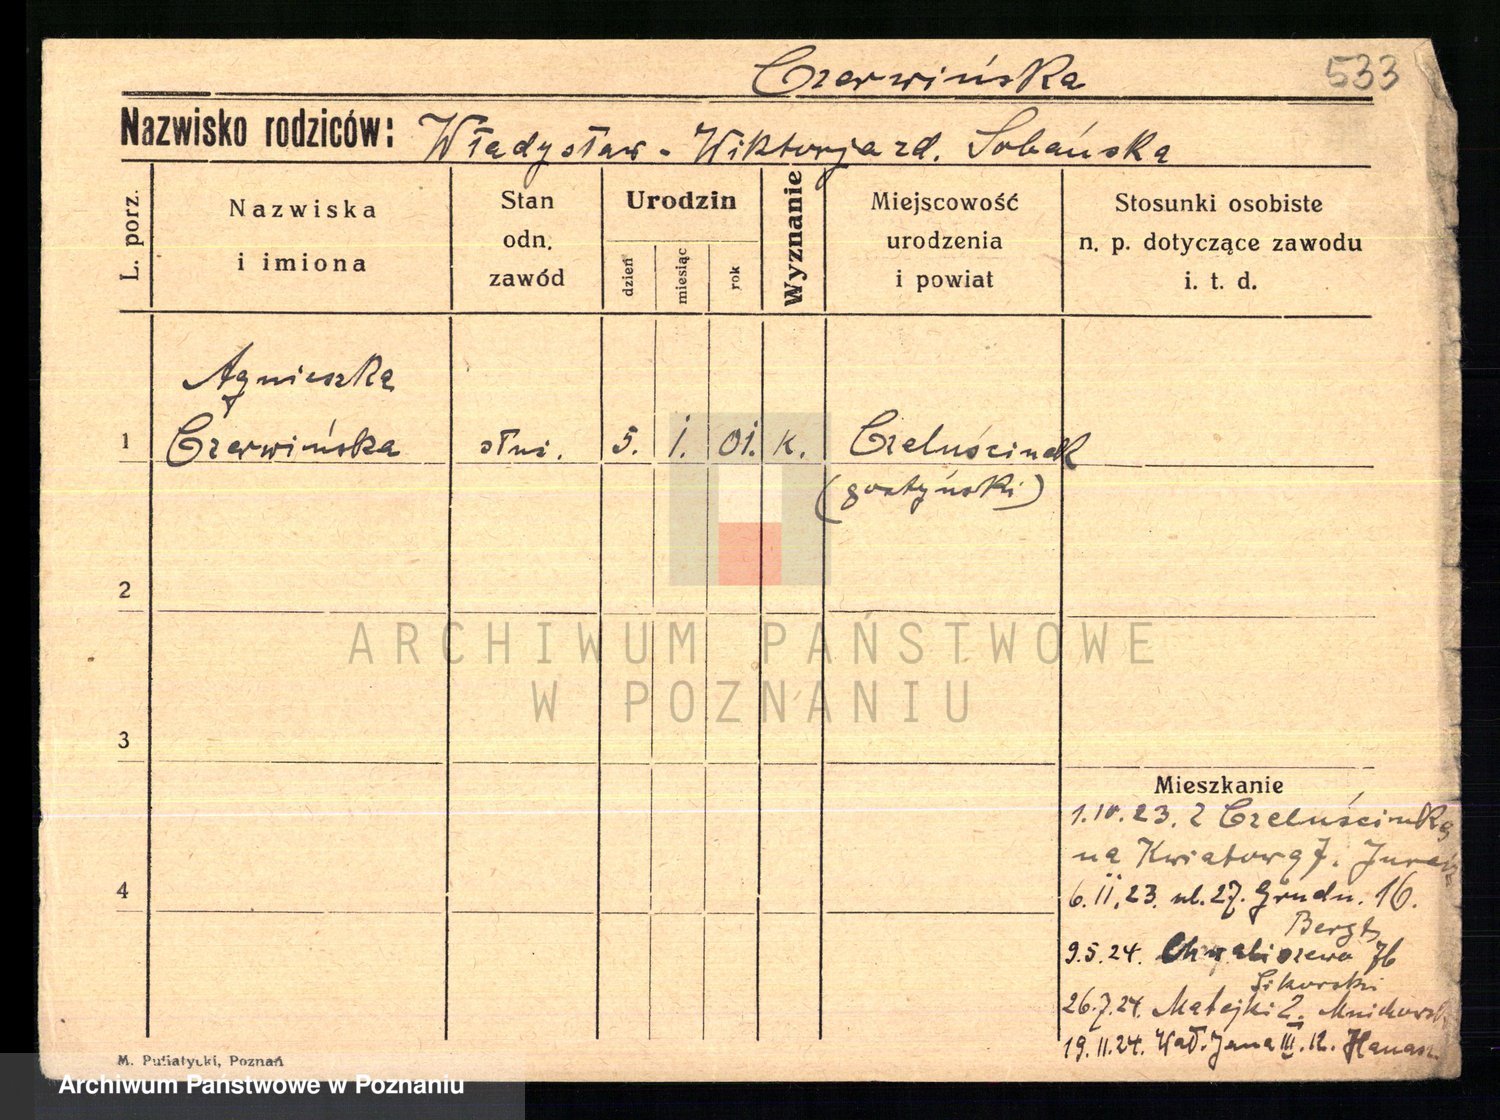 Czerwińska 533
Nazwisko rodziców: Władysław - Wiktorja zd. Sobańska
L. porz.
Nazwiska
i imiona
Stan
odn.
zawód
Urodzin
dzień
miesiąc
rok
Wyznanie
Miejscowość
urodzenia
i powiat
Stosunki osobiste
n. p. dotyczące zawodu
i. t. d.
Agnieszka
1 Czerwińska słui. 5. I. 01. k. Czeluścinek
(gostyński)
2
3
4
ARCHIWUM PAŃSTWOWE
W POZNANIU
Mieszkanie
1.10.23. z Czeluścinka
na Kwiatową 7.
6.II.23. ul. 27. Grudn. 16.
9.5.24. Chwaliszewo 76
Sikorski
26.7.24. Matejki 2.
19.11.24. Wał. Jana III. 12.
M. Putiatycki, Poznań
Archiwum Państwowe w Poznaniu